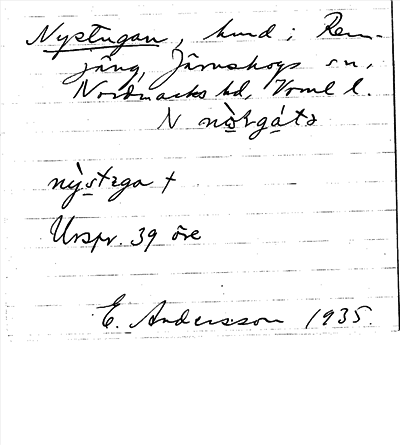 Nystugan, hmd i Ren-
jäng, Järnskogs sn,
Nordmarks hd, Vrml l.
N nòrgáta
nỳstəga +
Urspr. 39 öre
E. Andersson 1935.